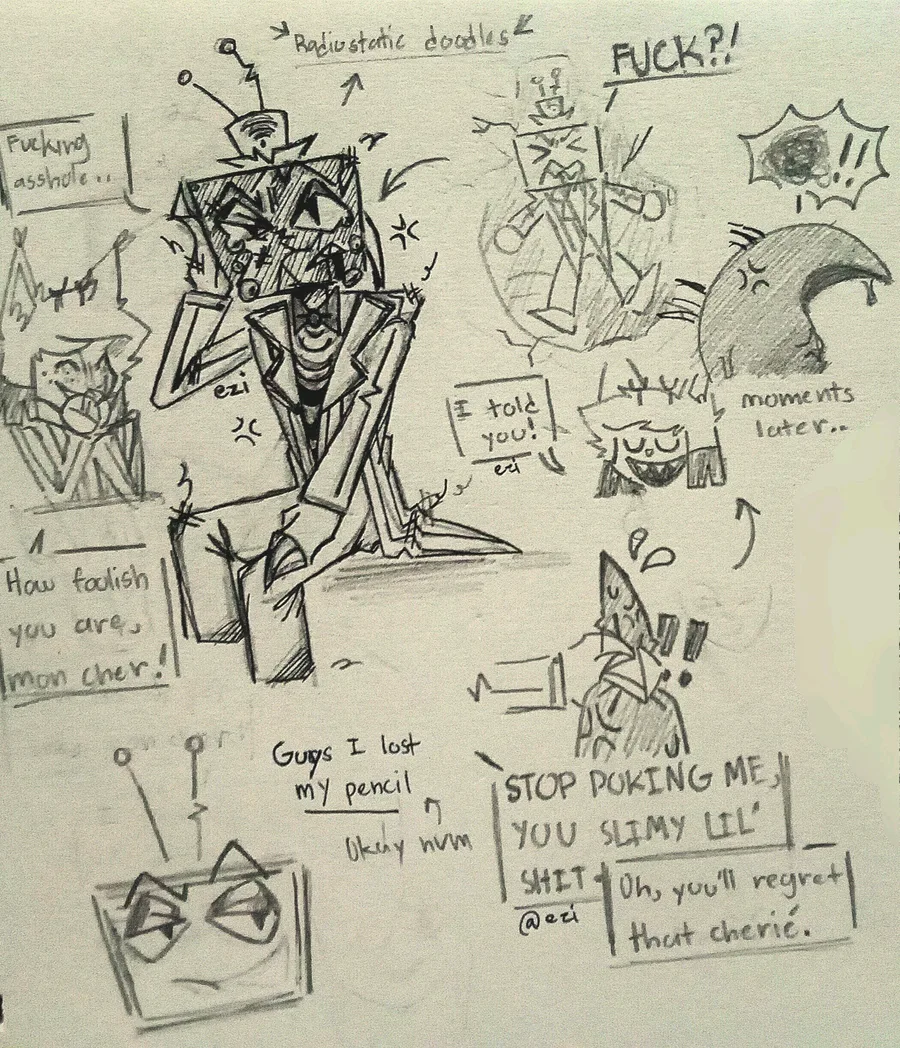 Radiostatic doodles
FUCK?!
Fucking
asshole..
!!
ezi
I told
you!
ezi
moments
later..
How foolish
you are,
mon cher!
!!
Guys I lost
my pencil
Okay nvm
STOP POKING ME,
YOU SLIMY LIL'
SHIT
@ezi
Oh, you'll regret
that cherié.